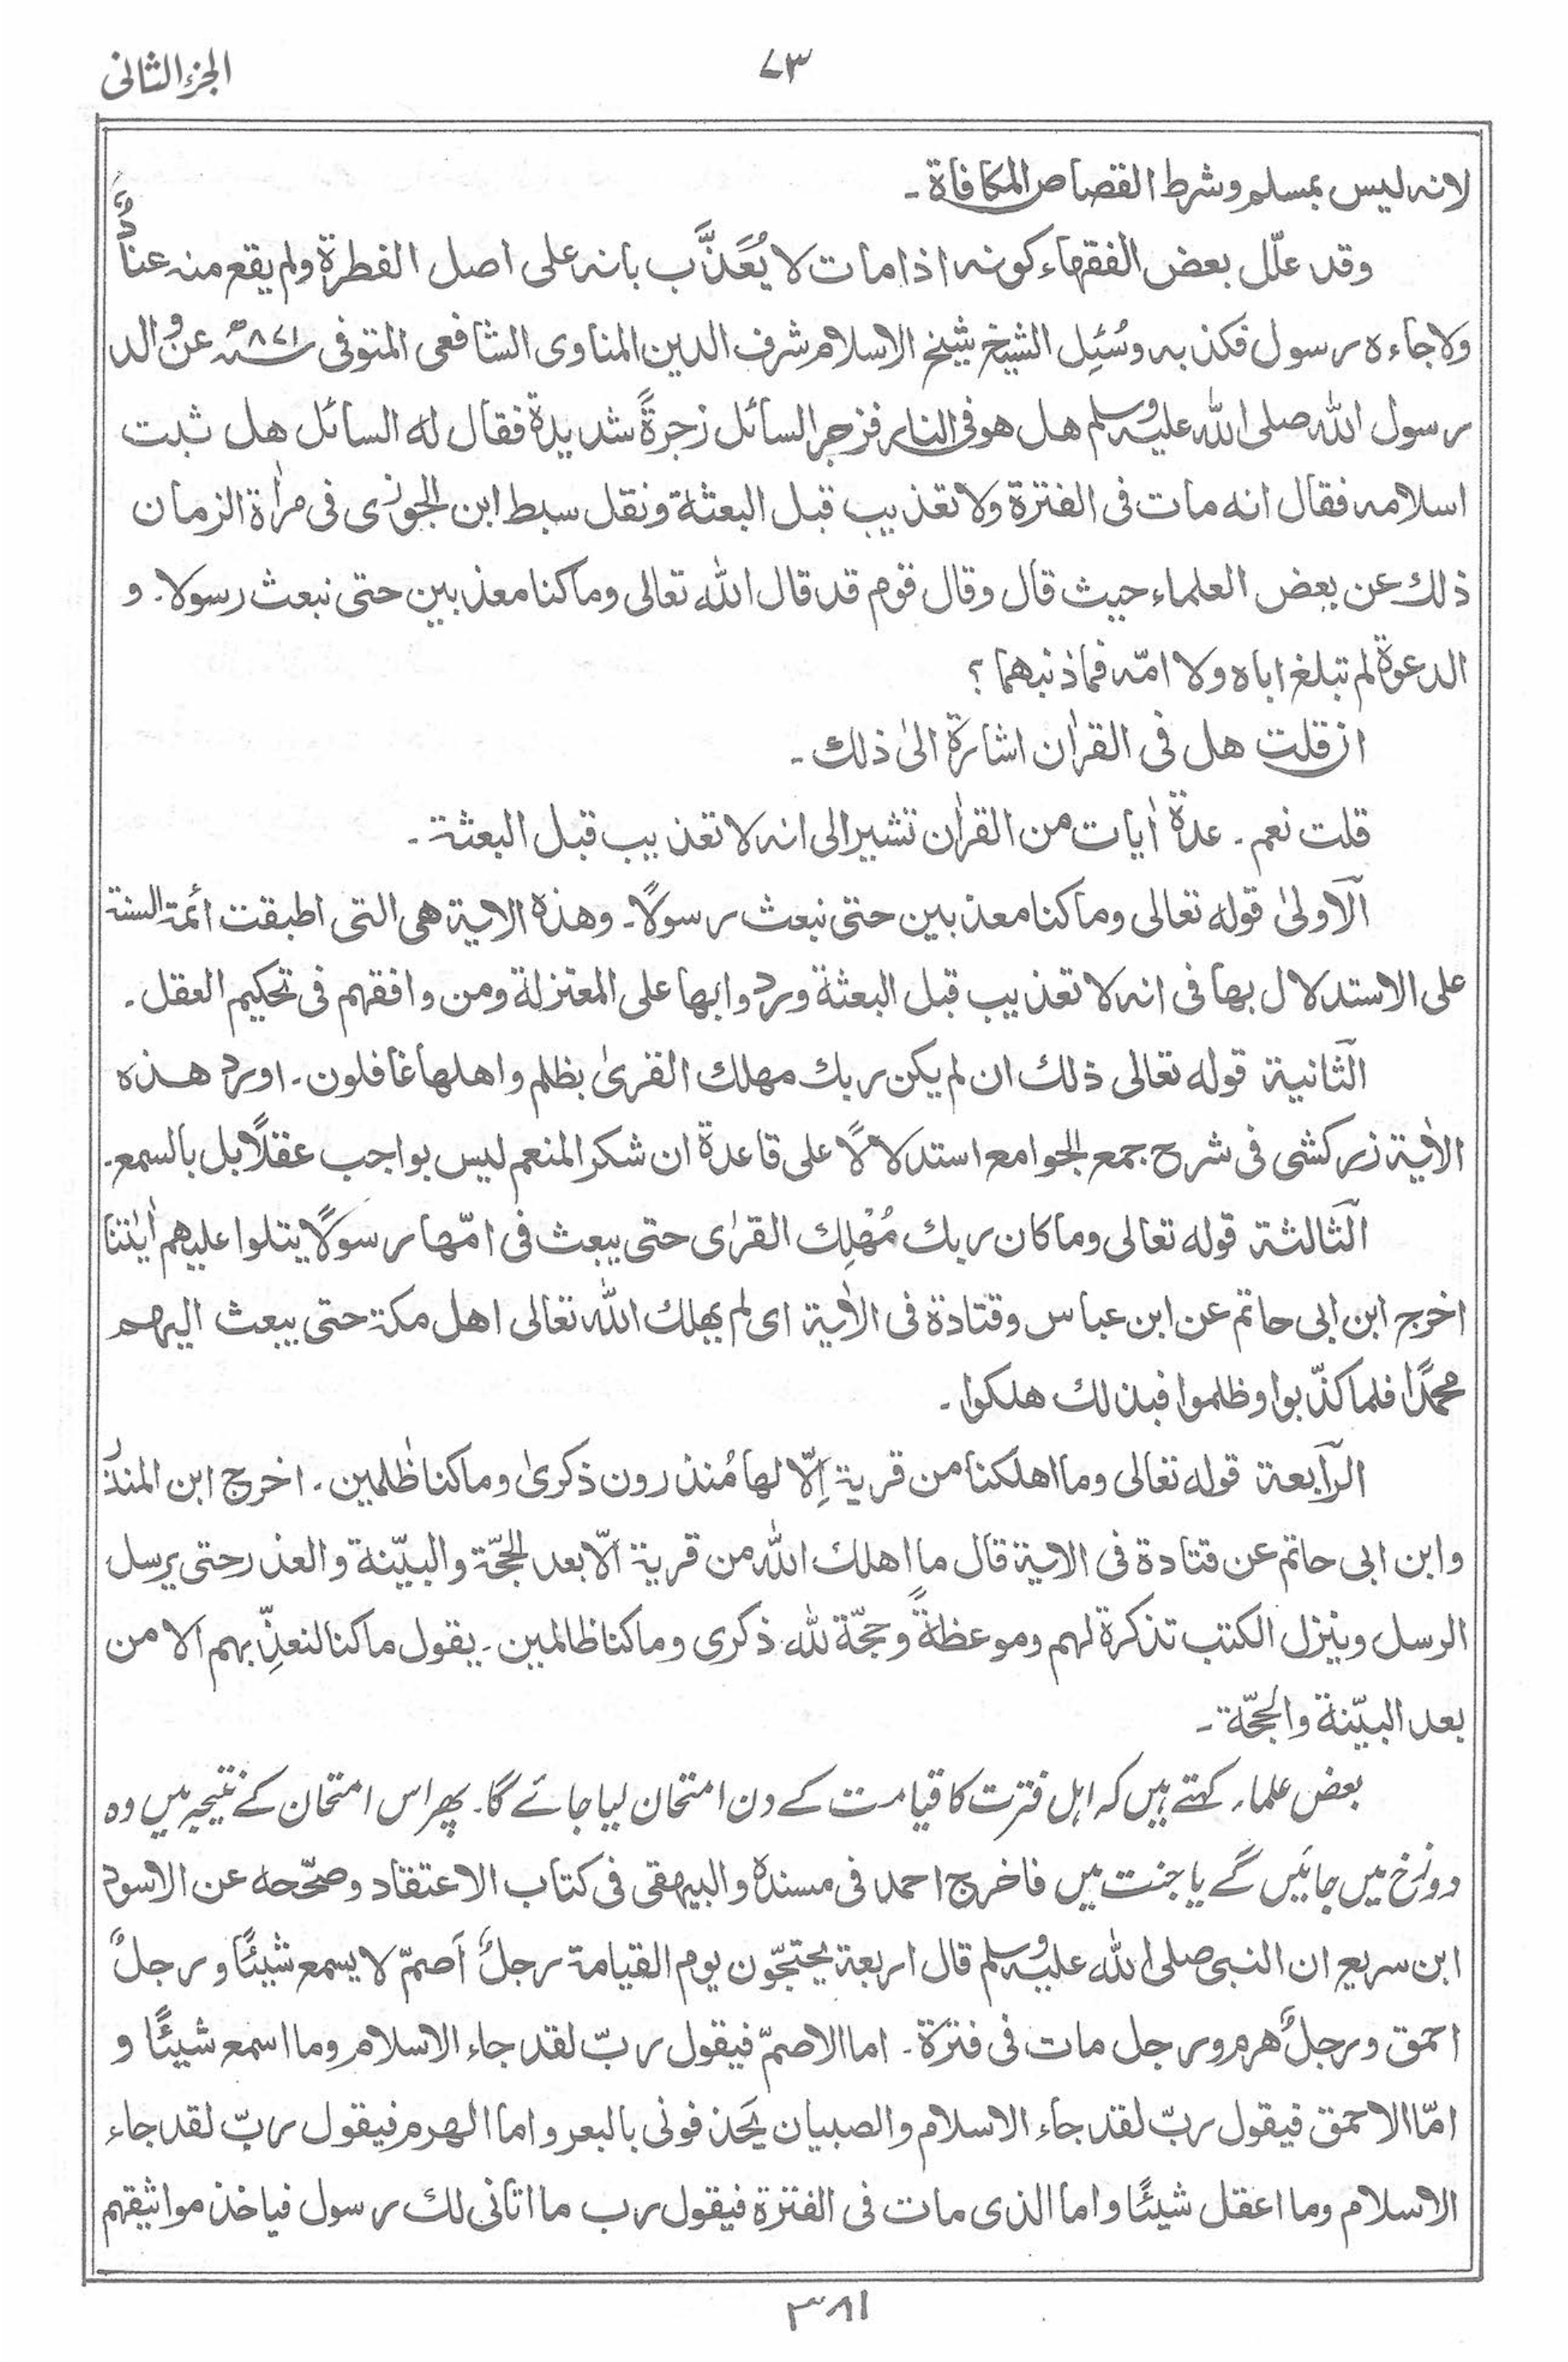 الجزء الثانی
۷۳
لانہ لیس بمسلم وشرط القصاص المکافاۃ ۔
وقد علّل بعض الفقہاء کونہ اذا مات لا یُعَذَّب بانہ علی اصل الفطرۃ ولم یقع منہ عنادٌ
ولا جاءہ رسول فکذبہ وسُئِل الشیخ شیخ الاسلام شرف الدین المناوی الشافعی المتوفی ۸۷۱ھ عن والد
رسول اللہ صلی اللہ علیہ وسلم ھل ھو فی النار فزجر السائل زجرۃً شدیدۃ فقال لہ السائل ھل ثبت
اسلامہ فقال انہ مات فی الفترۃ ولا تعذیب قبل البعثۃ ونقل سبط ابن الجوزی فی مراٰۃ الزمان
ذلك عن بعض العلماء حیث قال وقال قوم قد قال اللہ تعالی وما کنا معذبین حتی نبعث رسولا۔ و
الدعوۃ لم تبلغ اباہ ولا امّہ فما ذنبھما ؟
ان قلت ھل فی القراٰن اشارۃ الیٰ ذلك ۔
قلت نعم ۔ عدۃ اٰیات من القراٰن تشیر الی انہ لا تعذیب قبل البعثۃ ۔
اَلاولیٰ قولہ تعالی وما کنا معذبین حتی نبعث رسولًا۔ وھذہ الایۃ ھی التی اطبقت ائمۃ السنۃ
علی الاستدلال بھا فی انہ لا تعذیب قبل البعثۃ وردوا بھا علی المعتزلۃ ومن وافقہم فی تحکیم العقل ۔
الثانیۃ قولہ تعالی ذلك ان لم یکن ربك مھلك القریٰ بظلم واھلھا غافلون ۔ اورد ھذہ
الاٰیۃ زرکشی فی شرح جمع الجوامع استدلالًا علی قاعدۃ ان شکر المنعم لیس بواجب عقلًا بل بالسمع۔
الثالثۃ قولہ تعالی وما کان ربك مُھْلِك القرٰی حتی یبعث فی امّھا رسولًا یتلوا علیھم اٰیٰتنا
اخرج ابن ابی حاتم عن ابن عباس وقتادۃ فی الاٰیۃ ای لم یھلك اللہ تعالی اھل مکۃ حتی یبعث الیھم
محمدًا فلما کذّبوا وظلموا فبذلك ھلکوا ۔
الرابعۃ قولہ تعالی وما اھلکنا من قریۃ اِلّا لھا مُنذرون ذکریٰ وما کنا ظٰلمین ۔ اخرج ابن المنذر
وابن ابی حاتم عن قتادۃ فی الایۃ قال ما اھلك اللہ من قریۃ الّا بعد الحجّۃ والبیّنۃ والعذر حتی یرسل
الرسل وینزل الکتب تذکرۃ لھم وموعظۃً وحجّۃ للہ ذکری وما کنا ظالمین ۔ یقول ما کنا لنعذّبھم الا من
بعد البیّنۃ والحجّۃ ۔
بعض علماء کہتے ہیں کہ اہل فترت کا قیامت کے دن امتحان لیا جائے گا۔ پھر اس امتحان کے نتیجہ میں وہ
دوزخ میں جائیں گے یا جنت میں فاخرج احمد فی مسندہ والبیہقی فی کتاب الاعتقاد وصحّحہ عن الاسود
ابن سریع ان النبی صلی اللہ علیہ وسلم قال اربعۃ یحتجّون یوم القیامۃ رجلٌ اَصمّ لا یسمع شیئًا ورجلٌ
احمق ورجلٌ ھرم ورجل مات فی فترۃ ۔ اما الاصمّ فیقول ربّ لقد جاء الاسلام وما اسمع شیئًا و
امّا الاحمق فیقول ربّ لقد جاء الاسلام والصبیان یَحذفونی بالبعر واما الھرم فیقول ربّ لقد جاء
الاسلام وما اعقل شیئًا واما الذی مات فی الفترۃ فیقول رب ما اتانی لك رسول فیاخذ مواثیقہم
۳۸۱